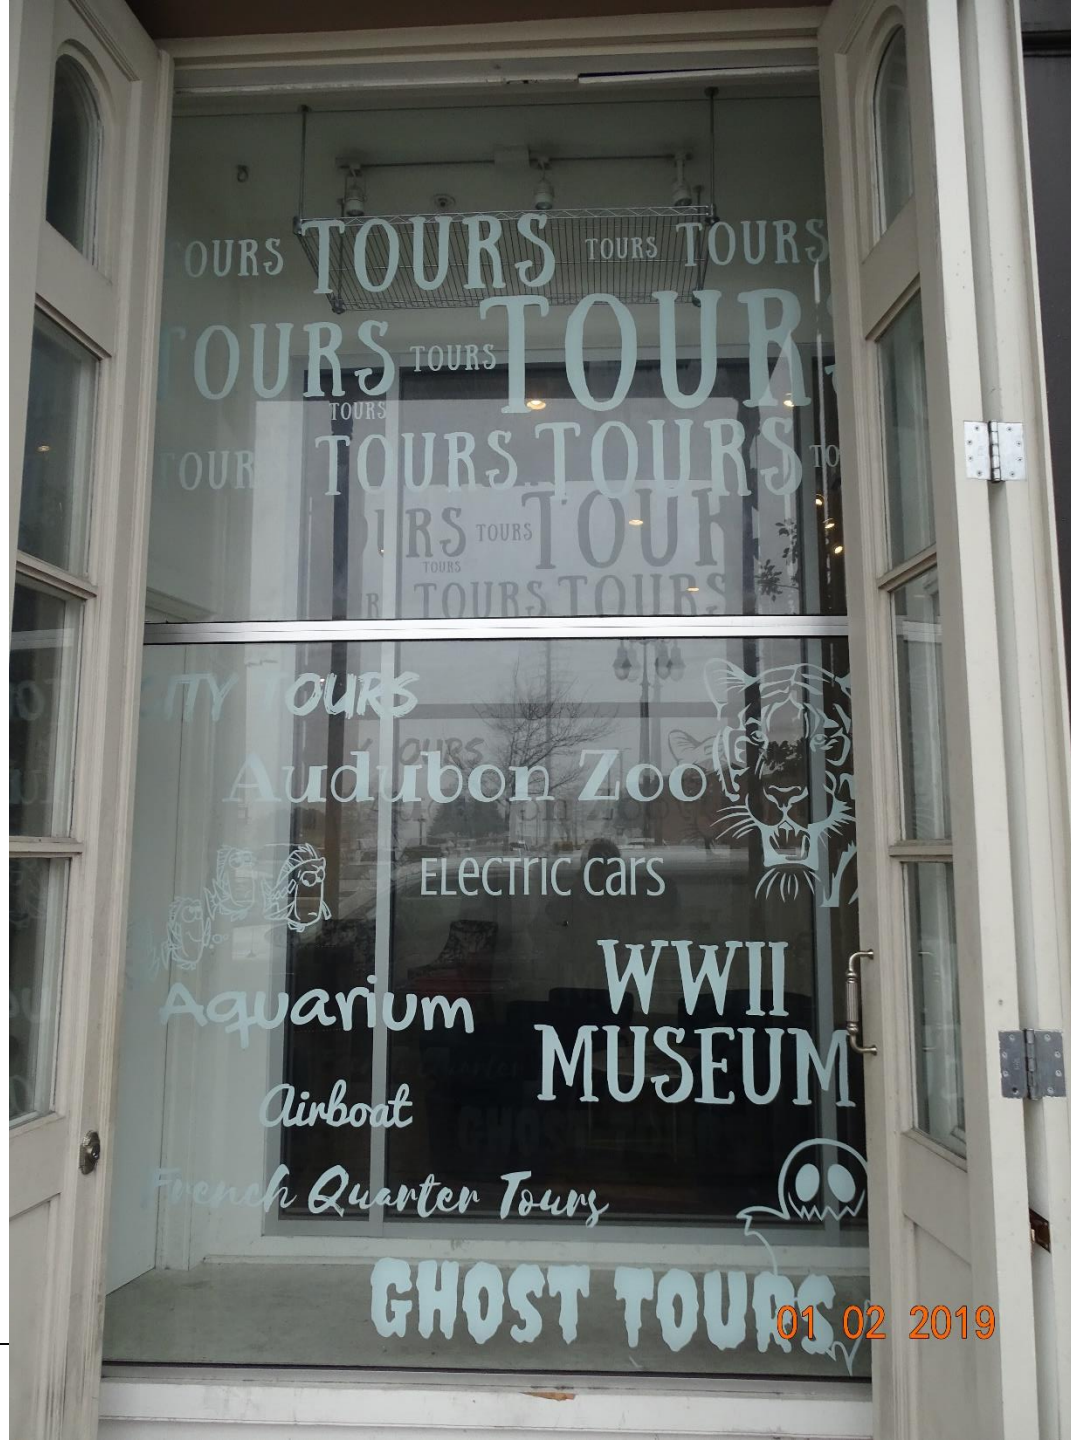 TOURS TOURS TOURS TOURS
TOURS TOURS TOURS
TOURS
TOUR TOURS TOURS TO
TOURS TOUR
TOURS
TOURS TOURS
CITY TOURS
Audubon Zoo
ELECTRIC CARS
Aquarium
WWII
MUSEUM
Airboat
French Quarter Tours
GHOST TOURS
01 02 2019